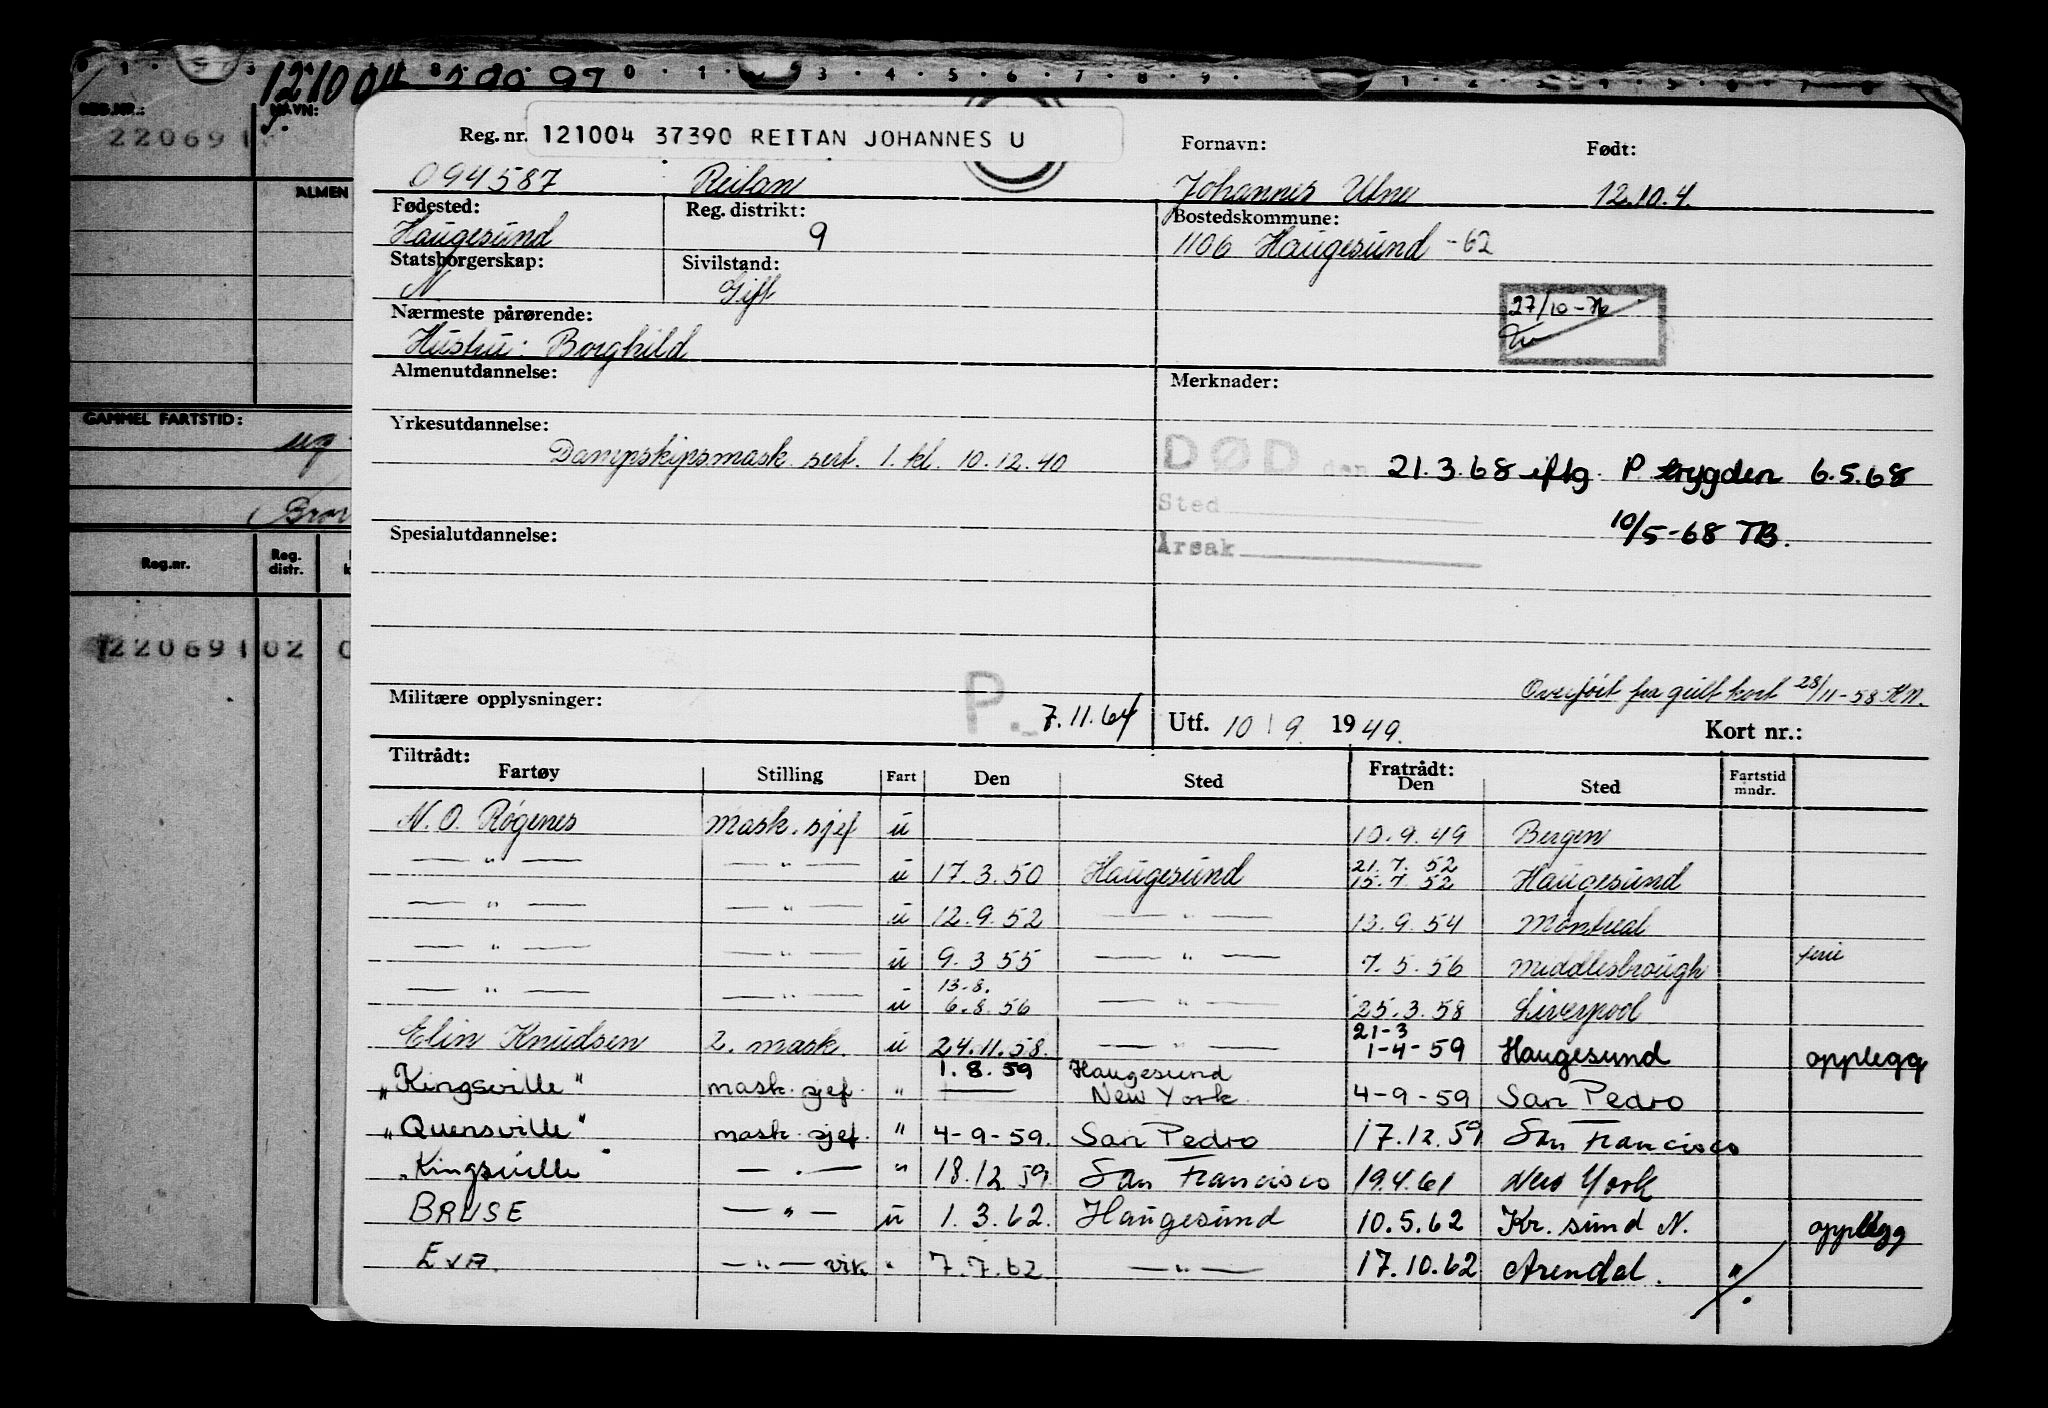 0 1 3 8 0 1 3 4 5 6 7 8 9 1 2
121004
REG.NR.: NAVN:
220691
ALMEN
GAMMEL FARTSTID:
Reg.nr. Reg. distr.
220691 02 0
Reg. nr. 121004 37390 REITAN JOHANNES U Fornavn: Født:
094587 Reitan Johannes Utne 12.10.4.
Fødested: Reg. distrikt: Bostedskommune:
Haugesund 9 1106 Haugesund -62
Statsborgerskap: Sivilstand:
N Gift
27/10-76
Nærmeste pårørende:
Hustru: Borghild
Almenutdannelse: Merknader:
Yrkesutdannelse:
Dampskipsmask sert. 1. kl. 10.12.40
DØD den 21.3.68 iflg. P. trygden 6.5.68
Sted
10/5-68 TB.
Spesialutdannelse: Årsak
Overført fra gult kort 28/11-58 KN.
Militære opplysninger: P. 7.11.64 Utf. 10/9. 1949. Kort nr.:
Tiltrådt: Fratrådt:
Fartøy Stilling Fart Den Sted Den Sted Fartstid mndr.
N. O. Røgenes mask. sjef u 10.9.49 Bergen
— " — — " — u 17.3.50 Haugesund 21.7.52 15.7.52 Haugesund
— " — — " — u 12.9.52 — " — 13.9.54 Montreal
— " — — " — u 9.3.55 — " — 7.5.56 Middlesbrough ferie
— " — — " — u 13.8. 6.8.56 — " — 25.3.58 Liverpool
Elin Knudsen 2. mask. u 24.11.58. — " — 21-3 1-4-59 Haugesund opplegg
"Kingsville" mask. sjef. " 1.8.59 Haugesund New York 4-9-59 San Pedro
"Quensville" mask. sjef. " 4-9-59. San Pedro 17.12.59 San Francisco
"Kingsville" — " — " 18.12.59. San Francisco 19.4.61 New York
BRUSE — " — u 1.3.62. Haugesund 10.5.62 Kr. sund N. opplegg
EVA. — " — vik " 7.7.62 — " — 17.10.62 Arendal. "/.